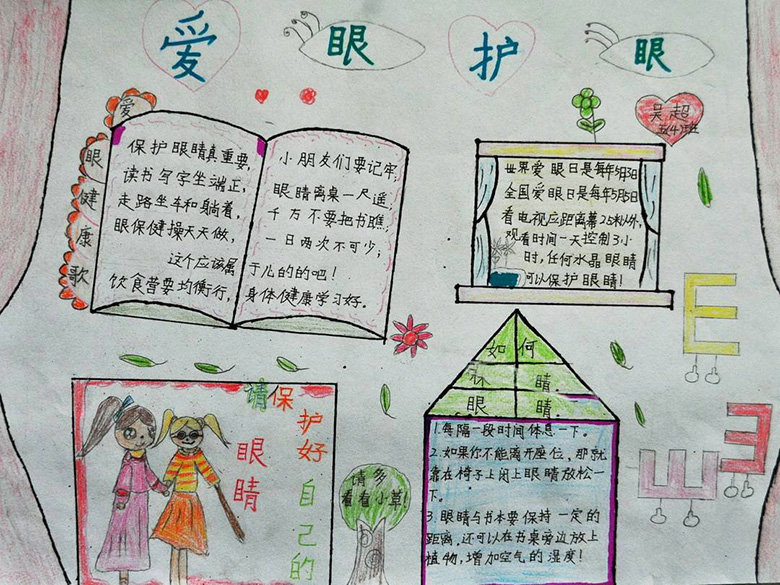 爱眼护眼
吴超
五(4)班
爱眼健康歌
保护眼睛真重要,
读书写字坐端正,
走路坐车和躺着,
眼保健操天天做,
这个应该属
饮食营要均衡行,
小朋友们要记牢,
眼睛离桌一尺遥,
千万不要把书瞧,
一日两次不可少;
于儿的的吧!
身体健康学习好。
世界爱眼日是每年
全国爱眼日是每年5月5日
看电视应距离幕2.5米以外,
观看时间一天控制3小
时,任何水晶眼睛
可以保护眼睛!
请保护好自己的
眼睛
请多
看看小草!
如何
睛
眼睛
1.每隔一段时间休息一下。
2.如果你不能离开座位,那就
靠在椅子上闭上眼睛放松一
下。
3.眼睛与书本要保持一定的
距离.还可以在书桌旁边放上
植物,增加空气的湿度!
E
E
E